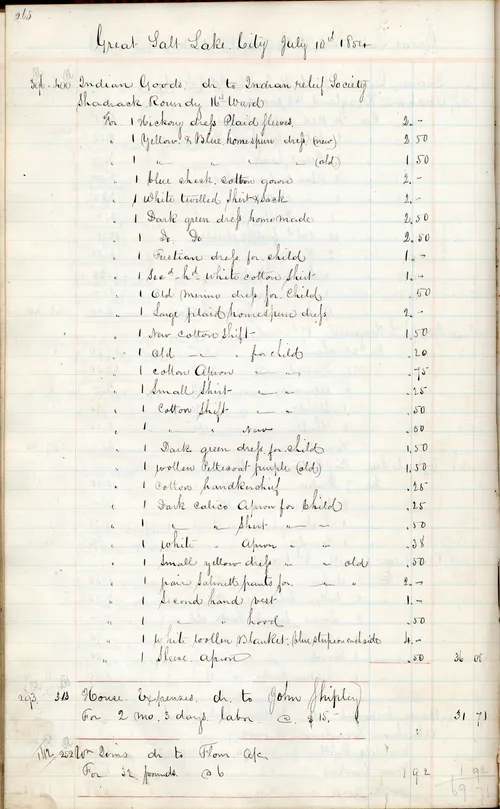 265
Great Salt Lake City July 10th 1854
Indian Goods, dr to Indian relief Society
Shadrack Roundy 16th Ward
For 1 Hickory dress Plaid sleeves 2.-
" 1 Yellow & Blue homespun dress (new) 2 50
" 1 " " " " (old) 1 50
" 1 blue check cotton gown 2.-
" 1 White twilled Shirt & sack 2.-
" 1 Dark green dress homemade 2.50
" 1 Do Do 2.50
" 1 Fustian dress for child 1.-
" 1 Secd-hd white cotton Shirt 1.-
" 1 Old Merino dress for Child .50
" 1 Large plaid homespun dress 2.-
" 1 New cotton Shift 1.50
" 1 Old — " for child .20
" 1 cotton Apron — " .75
" 1 Small Shirt — " .25
" 1 Cotton Shift — " .50
" 1 " — " New .60
" 1 Dark green dress for child 1.50
" 1 wollen Petticoat purple (old) 1.50
" 1 Cotton handkerchief .25
" 1 Dark calico Apron for Child .25
" 1 " " Skirt " " .50
" 1 White " Apron " " .38
" 1 Small yellow dress " " old .50
" 1 pair Satinett pants for " " 2.-
" 1 Second hand vest 1.-
" 1 " " hood .50
" 1 White wollen Blanket, blue stripe on each side 4.-
" 1 Sleeve Apron .50 36 08
293 313 House Expenses dr to John Shipley
For 2 mo. 3 days labor @ $15. 31 71
dr to Flour a/c
For 32 pounds @ 6 1 92
1 92
69 71